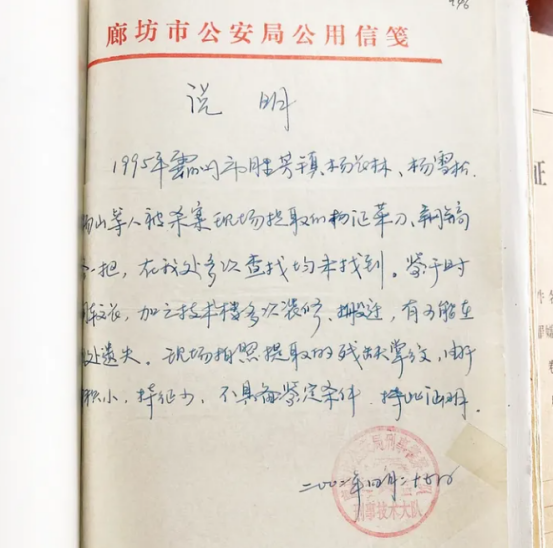 496
廊坊市公安局公用信笺
说 明
1995年霸州市胜芳镇杨长林、杨雪松、
山等人被杀案现场提取的物证菜刀、铡
一把,在我处多次查找均未找到。鉴于时
间较长,加之技术楼多次装修、搬迁,有可能在
处遗失。现场拍照提取的残缺掌纹,由于
积小,特征少,不具备鉴定条件,特此证明。
二〇〇二年四月二十
刑事技术大队
证